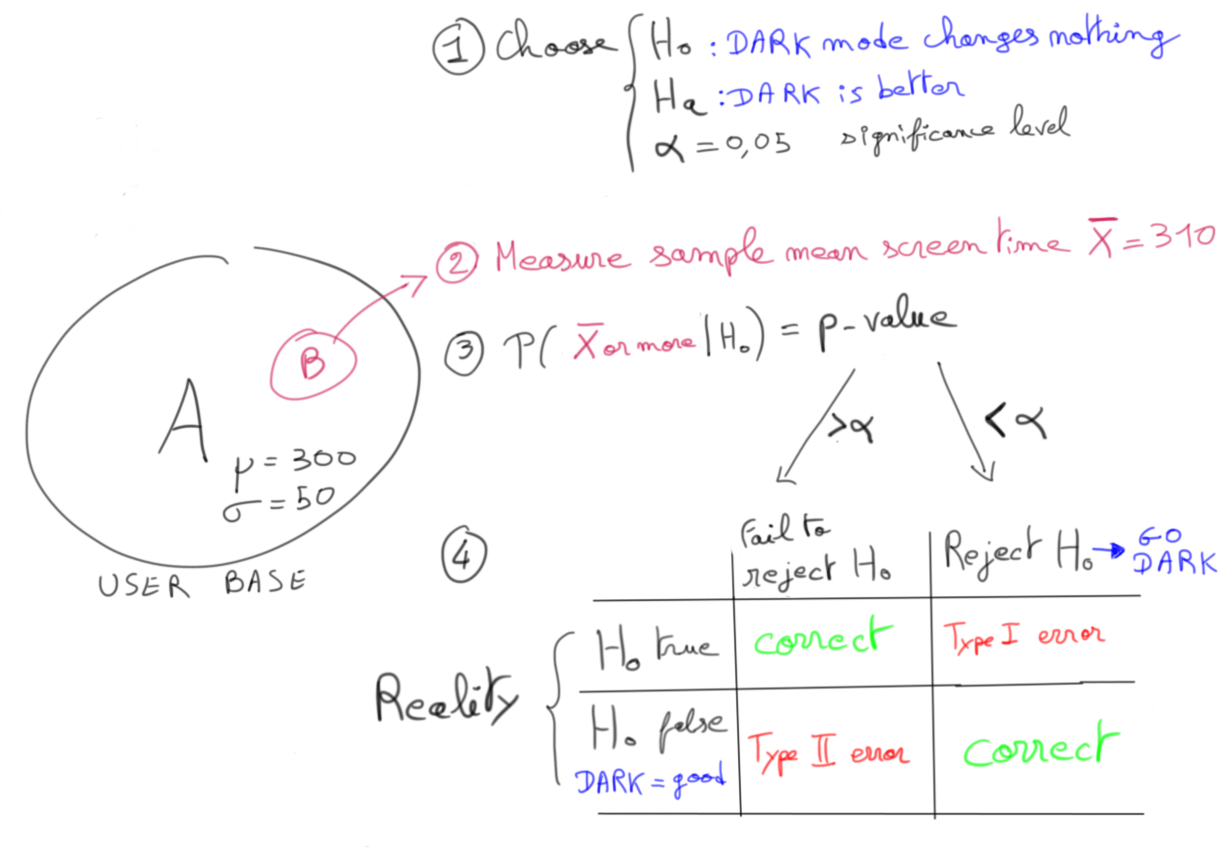 ① Choose { H₀ : DARK mode changes nothing
Ha : DARK is better
α = 0,05 significance level
② Measure sample mean screen time X̄ = 310
③ P( X̄ or more | H₀ ) = p-value
> α
< α
B
A
μ = 300
σ = 50
USER BASE
④
Fail to
reject H₀
Reject H₀ → GO
DARK
Reality {
H₀ true
correct
Type I error
H₀ false
DARK = good
Type II error
correct